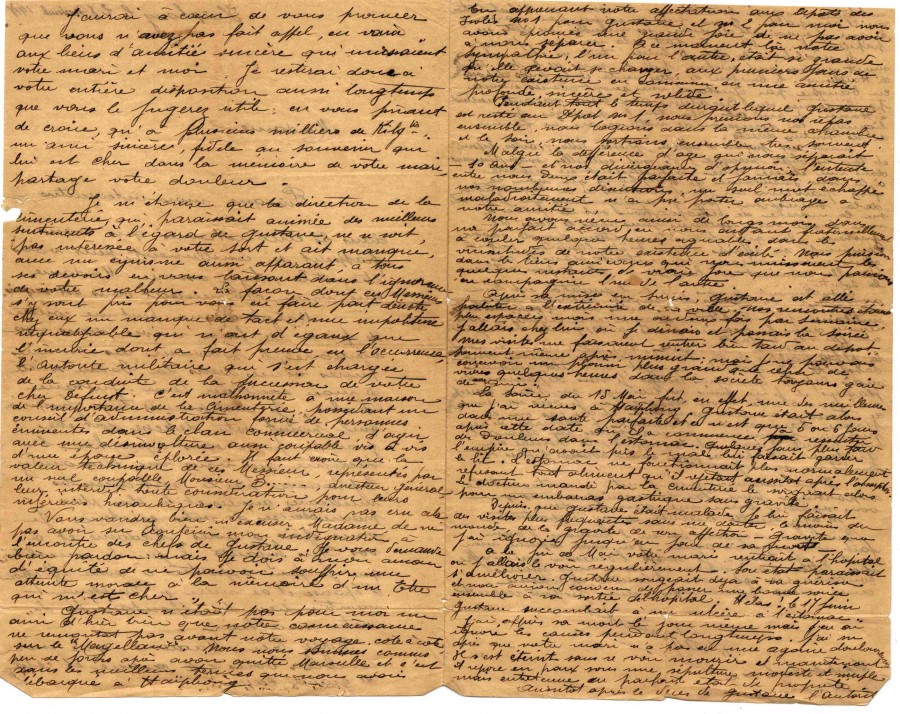 J'aurai à cœur de vous prouver
que vous n'avez pas fait appel, en vain
aux liens d'amitié sincère qui unissaient
votre mari et moi. Je resterai donc à
votre entière disposition aussi longtemps
que vous le jugerez utile; en vous priant
de croire, qu'à plusieurs milliers de Kil
un ami sincère, fidèle au souvenir qui
lui est cher dans la mémoire de votre mari
partage votre douleur.
Je m'étonne que la direction de la
cimenterie qui paraissait animée des meilleurs
sentiments à l'égard de Gustave, ne se soit
pas intéressée à votre sort et ait manqué,
avec un cynisme aussi apparent, à tous
ses devoirs en vous laissant dans l'ignorance
de votre malheur. La façon dont ces Messieurs
s'y sont pris pour vous en faire part
chez eux un manque de tact et une impolitesse
inqualifiable qui n'ont d'égaux que
l'incurie dont a fait preuve en l'occurrence
l'autorité militaire qui s'est chargée
de la conduite de la succession de votre
cher Défunt. C'est malhonnête à une maison
de l'importance de la Cimenterie, possédant un
conseil d'administration formé de personnes
éminentes, dans le clan commercial d'agir
avec une désinvolture aussi coupable vis à vis
d'une épouse éplorée. Il faut croire que la
valeur technique de ces Messieurs représentés par
un seul coupable Monsieur B directeur général
leur interdit toute considération pour leurs
inférieurs hiérarchiques. Je n'aurais pas cru
Vous voudrez bien m'excuser Madame de ne
pas avoir su tempérer mon indignation à
l'encontre des chefs de Gustave. Je vous demande
bien pardon; mais je dois à mon amour
d'équité de ne pouvoir souffrir une
atteinte morale à la mémoire d'un Être
qui m'est cher.
Gustave n'était pas pour moi un
ami d'hier bien que notre connaissance
ne remontât pas avant notre voyage côte à côte
sur le "Magellan". Nous nous sommes connus
peu de jours après avoir quitté Marseille et c'est
dans les meilleurs termes que nous avons
débarqué à Haïphong.
En apprenant notre affectation aux dépôts des
isolés n° 1 pour Gustave et n° 2 pour moi nous
avons éprouvé une grande joie de ne pas avoir
à nous séparer. De ce moment là notre
sympathie, l'un pour l'autre, était si grande
qu'elle devait se changer, aux premiers jours de
notre existence en commun, en une amitié
profonde, sincère et solide.
Pendant tout le temps durant lequel Gustave
est resté au Dépôt n° 1, nous prenions nos repas
ensemble, nous logions dans la même chambre
le soir, nous sortions ensemble très souvent.
Malgré la différence d'âge qui nous séparait
10 ans et nos divergences d'opinion l'entente
entre nous deux était parfaite et jamais dans
nos nombreuses discussions, un seul mot échappé
maladroitement n'a pu porter ombrage à
notre amitié.
Nous avons vécu ainsi de longs mois dans
un parfait accord, en nous aidant fraternellement
à couler quelques heures agréables dans les
vicissitudes de notre existence d'exilé. Nous puisions
dans les liens amicaux qui nous unissaient les
quelques instants de vraie joie que nous passions
en compagnie l'un de l'autre.
Après sa mise en sursis, Gustave est allé
à l'extérieur de la ville. Nos rencontres étaient
plus espacées mais une ou deux fois par semaine
j'allais chez lui où je dînais et passais la soirée.
Mes visites me faisaient rentrer bien tard au dépôt
souvent même après minuit; mais nous pouvions
vivre quelques heures dans la société toujours gaie
La soirée du 15 Mai fut en effet une des meilleures
que j'ai vécues à Haïphong. Gustave était alors
dans une santé parfaite et ce n'est que 5 ou 6 jours
après cette date qu'il a commencé à ressentir
des douleurs dans l'estomac. Quelques jours plus tard
l'empire qu'avait pris le mal lui faisait garder
le lit. L'estomac ne fonctionnait plus normalement
refusant tout aliment qu'il rejetait aussitôt après l'absorption.
Le docteur mandé par la Cimenterie le soignait alors
pour un embarras gastrique sans gravité.
Depuis que Gustave était malade, je lui faisais
des visites plus fréquentes sans me douter, le moins du
monde, de la gravité de son affection. Gravité que
j'ai ignorée jusqu'au jour de sa mort.
À la fin de Mai votre mari entrait à l'hôpital
où j'allais le voir régulièrement. Son état paraissait
s'améliorer. Gustave songeait déjà à sa guérison
et nous avions convenu de passer une bonne soirée
ensemble à sa sortie d'hôpital. Hélas! le 17 Juin
Gustave succombait à un ulcère à l'estomac.
J'ai appris sa mort le jour même mais j'en ai
ignoré les causes pendant longtemps. J'ai su
après que votre mari n'a pas eu une agonie douloureuse
il s'est éteint sans se voir mourir et maintenant
il repose en paix sous une sépulture modeste et simple
mais entretenue en parfait état de propreté.
Aussitôt après le décès de Gustave l'autorité